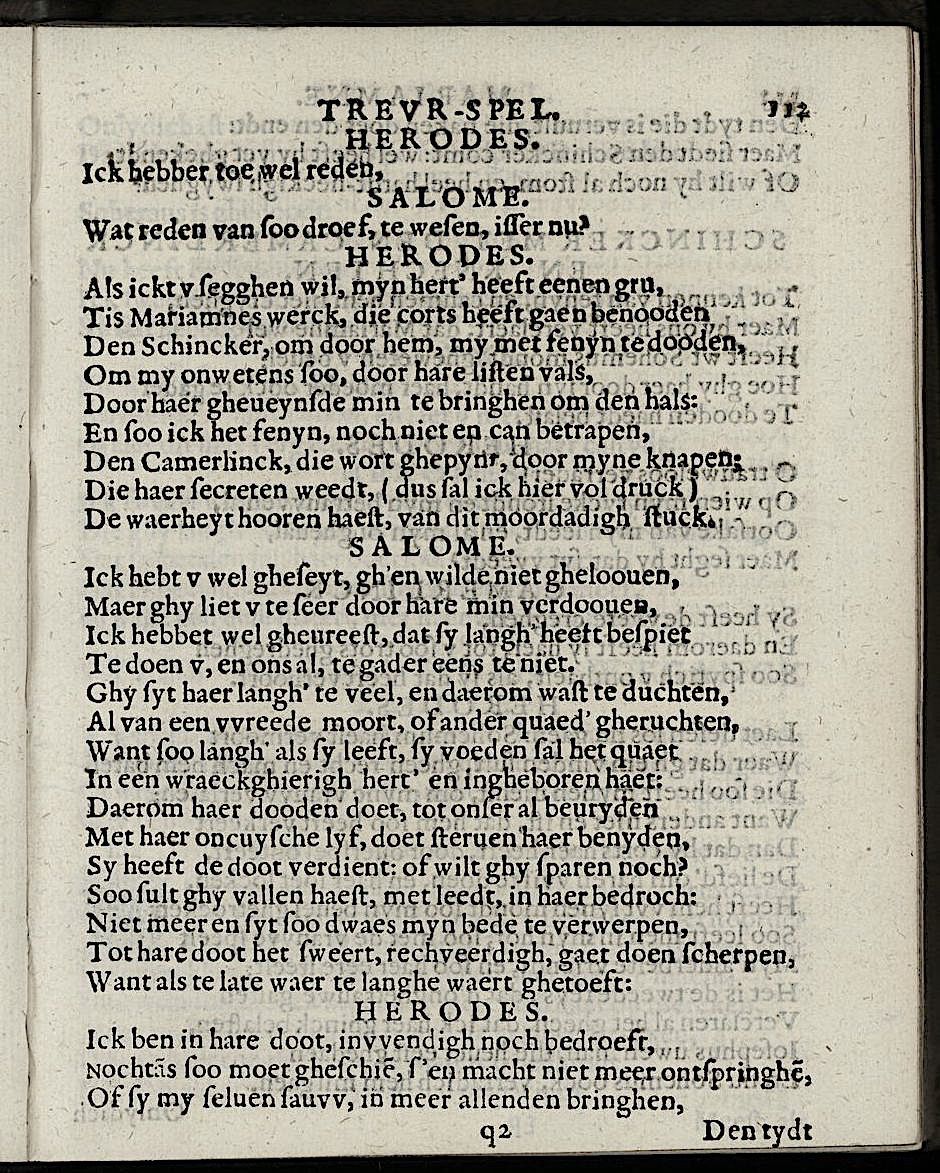 TREVR-SPEL. 112
HERODES.
Ick hebber toe wel reden,
SALOME.
Wat reden van soo droef, te wesen, isser nu?
HERODES.
Als ickt v segghen wil, myn hert' heeft eenen gru,
Tis Mariamnes werck, die corts heeft gaen benooden
Den Schincker, om door hem, my met fenyn te dooden,
Om my onwetens soo, door hare listen vals,
Door haer gheueynsde min te bringhen om den hals:
En soo ick het fenyn, noch niet en can betrapen,
Den Camerlinck, die wort ghepynt, door myne knapen;
Die haer secreten weedt, ( dus sal ick hier vol druck )
De waerheyt hooren haest, van dit moordadigh stuck.
SALOME.
Ick hebt v wel gheseyt, gh'en wilde niet gheloouen,
Maer ghy liet v te seer door hare min verdoouen,
Ick hebbet wel gheureest, dat sy langh' heeft bespiet
Te doen v, en ons al, te gader eens te niet.
Ghy syt haer langh' te veel, en daerom wast te duchten,
Al van een vvreede moort, of ander quaed' gheruchten,
Want soo langh' als sy leeft, sy voeden sal het quaet
In een wraeckghierigh hert' en ingheboren haet:
Daerom haer dooden doet, tot onser al beuryden
Met haer oncuysche lyf, doet steruen haer benyden,
Sy heeft de doot verdient: of wilt ghy sparen noch?
Soo sult ghy vallen haest, met leedt, in haer bedroch:
Niet meer en syt soo dwaes myn bede te verwerpen,
Tot hare doot het sweert, rechveerdigh, gaet doen scherpen,
Want als te late waer te langhe waert ghetoeft:
HERODES.
Ick ben in hare doot, invvendigh noch bedroeft,
Nochtãs soo moet gheschiẽ, s'en macht niet meer ontspringhẽ,
Of sy my seluen sauvv, in meer allenden bringhen,
q2 Den tydt